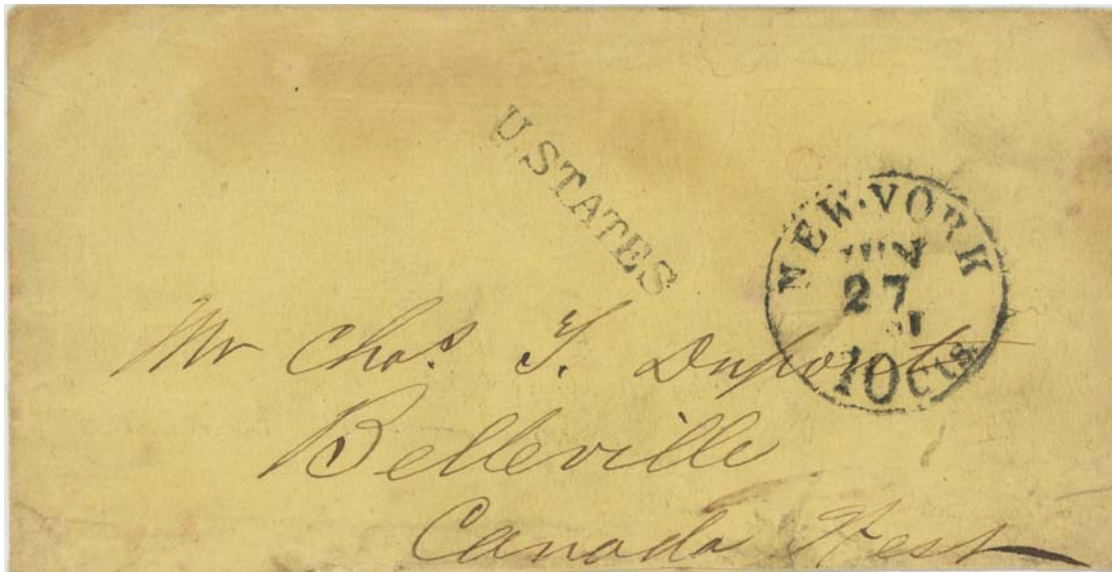 U.STATES
NEW-YORK
JUN
27
10 cts
Mr Chas. T. Dupont
Belleville
Canada West